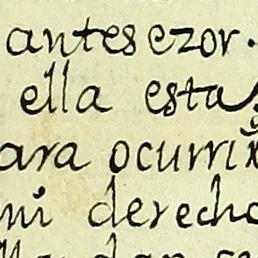 antesezor.
ella esta
ara ocurrir
mi derecho